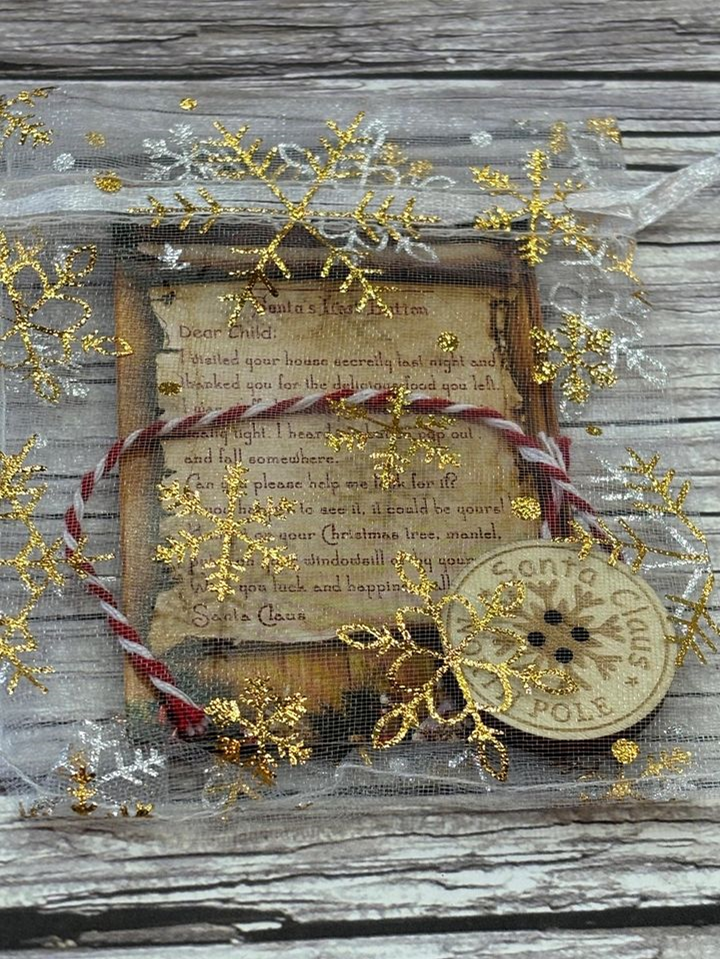 Santa's Lost Button
Dear Child:
I visited your house secretly last night and
thanked you for the delicious food you left.
many tight. I heard button pop out
and fall somewhere.
Can you please help me look for it?
you happen to see it, it could be yours!
on your Christmas tree, mantel,
windowsill by your
you luck and happin all
Santa Claus
Santa Claus
NORTH POLE